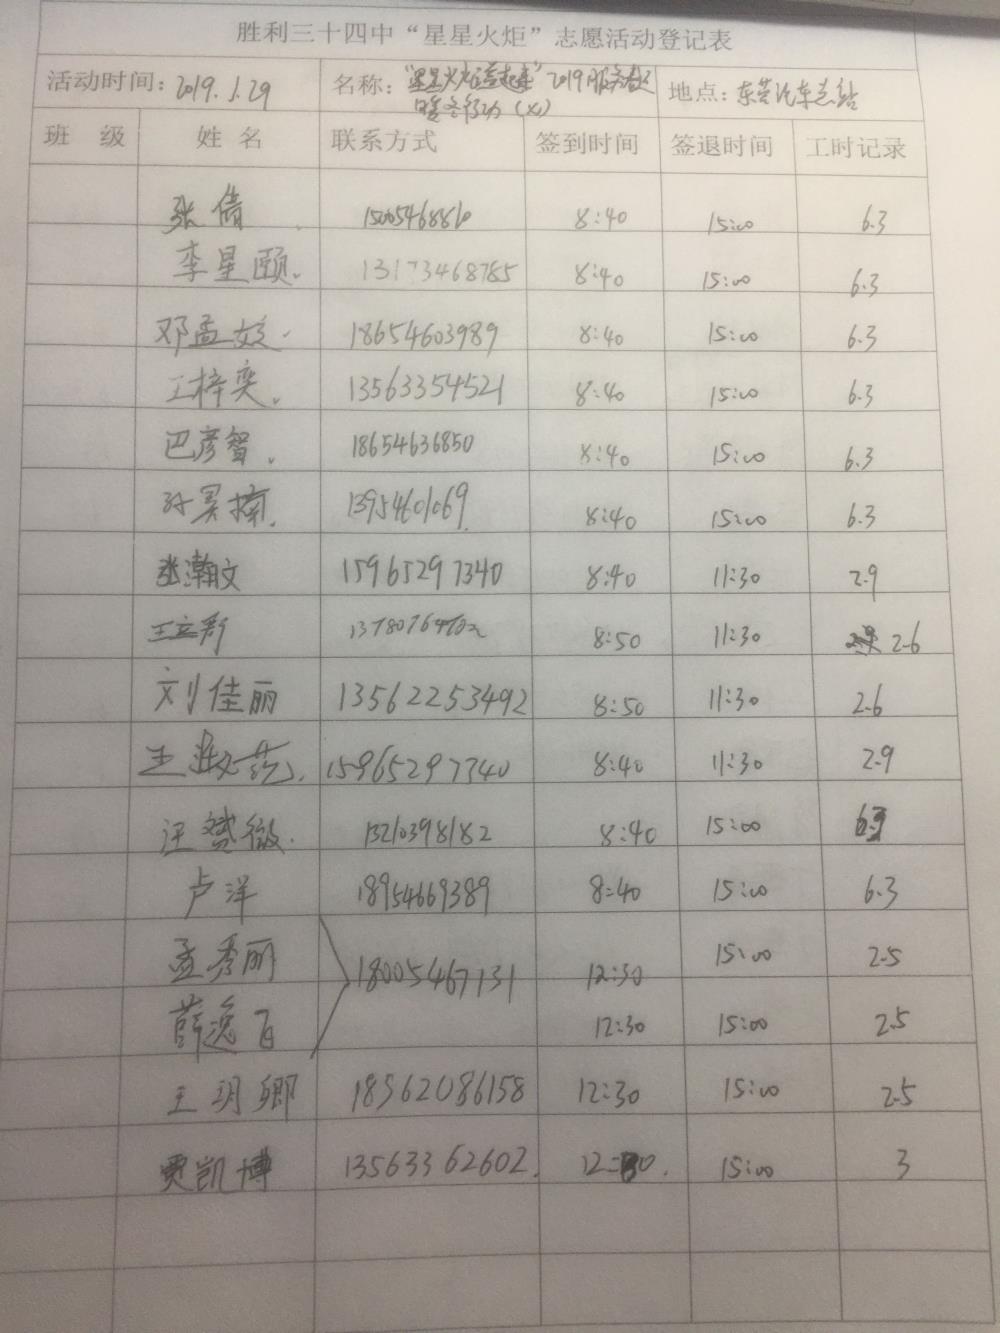 胜利三十四中“星星火炬”志愿活动登记表
活动时间：2019.1.29 名称：“星星火炬 2019服务春运 地点：东营汽车总站
暖冬行动（X）
班 级 姓 名 联系方式 签到时间 签退时间 工时记录
张倩 15005468860 8:40 15:00 6.3
李星颐 13173468785 8:40 15:00 6.3
邓孟 18654603989 8:40 15:00 6.3
王梓奕 13563354521 8:40 15:00 6.3
巴彦智 18654636850 8:40 15:00 6.3
孙 楠 13954601069 8:40 15:00 6.3
张瀚文 15965297340 8:40 11:30 2.9
王立新 8:50 11:30 2.6
刘佳丽 13562253492 8:50 11:30 2.6
王 15965297340 8:40 11:30 2.9
汪赟微 13210398182 8:40 15:00 6.3
卢洋 18954669389 8:40 15:00 6.3
孟秀丽 18005467131 12:30 15:00 2.5
薛逸 12:30 15:00 2.5
王玥卿 18562086158 12:30 15:00 2.5
贾凯博 13563362602 12:30 15:00 3